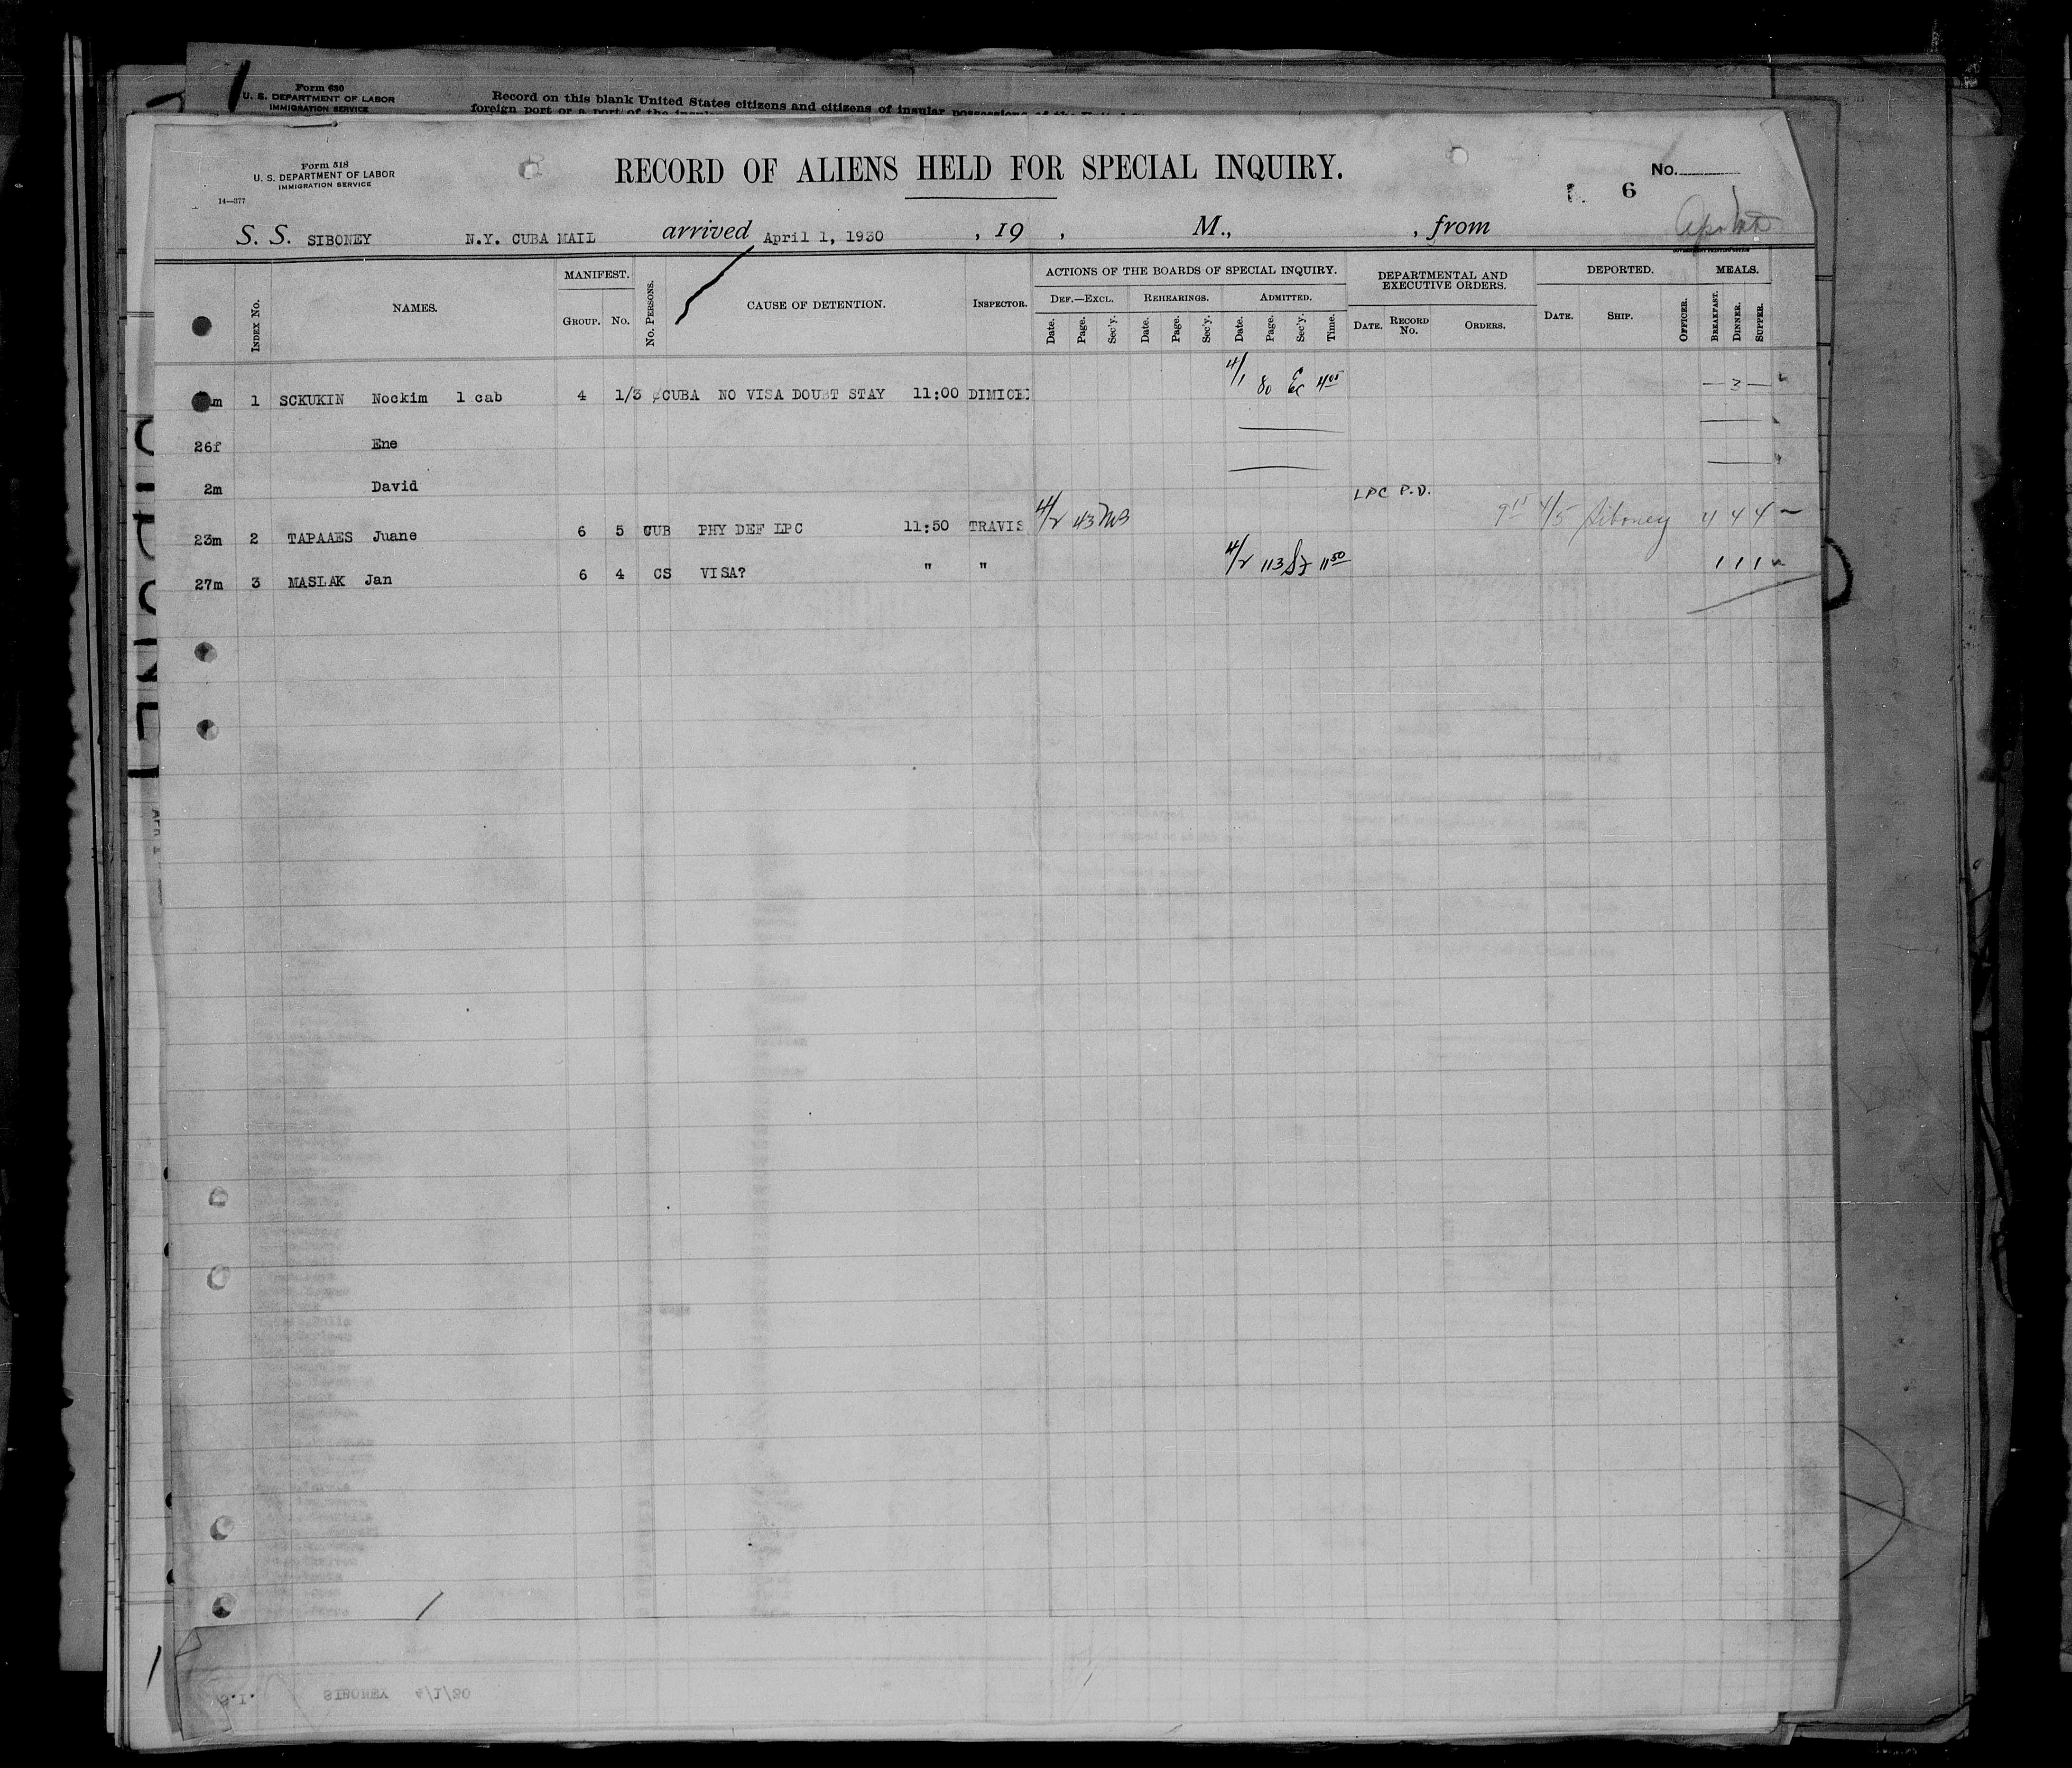 Form 630
U. S. DEPARTMENT OF LABOR
IMMIGRATION SERVICE
Record on this blank United States citizens and citizens of insular possessions of the United
foreign port or a port of the insular
Form 518
U. S. DEPARTMENT OF LABOR
IMMIGRATION SERVICE
14—377
RECORD OF ALIENS HELD FOR SPECIAL INQUIRY.
No.
6
S. S. SIBONEY N.Y. CUBA MAIL arrived April 1, 1930 , 19 , M., , from
INDEX No. NAMES. MANIFEST. GROUP. No. No. PERSONS. CAUSE OF DETENTION. INSPECTOR. ACTIONS OF THE BOARDS OF SPECIAL INQUIRY. DEPARTMENTAL AND EXECUTIVE ORDERS. DEPORTED. MEALS.
DEF.—EXCL. REHEARINGS. ADMITTED.
Date. Page. Sec'y. Date. Page. Sec'y. Date. Page. Sec'y. Time. DATE. RECORD No. ORDERS. DATE. SHIP. OFFICER. BREAKFAST. DINNER. SUPPER.
m 1 SCKUKIN Nockim 1 cab 4 1/3 CUBA NO VISA DOUBT STAY 11:00 DIMICEI 4/1 80 Ec 4 05 — 3 —
26f Ene
2m David
LPC P.D.
23m 2 TAPAAES Juane 6 5 CUB PHY DEF LPC 11:50 TRAVIS 4/2 43 MB 9 15 4/5 Siboney 4 4 4
27m 3 MASLAK Jan 6 4 CS VISA? " " 4/2 113 11 50 1 1 1
S.I. SIBONEY 4/1/30